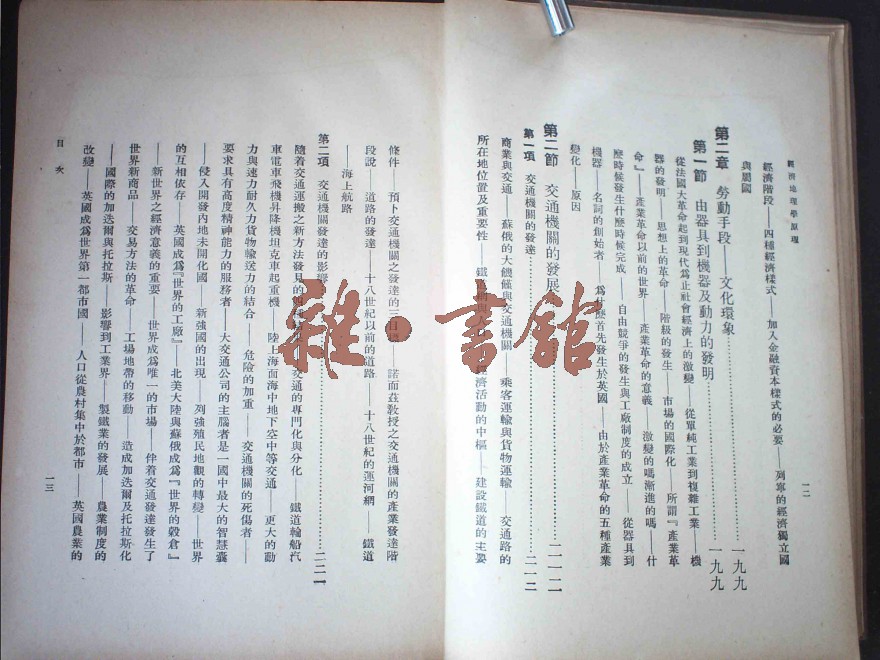 經濟地理學原理
一二
經濟階段——四種經濟樣式——加入金融資本樣式的必要——列寧的經濟獨立國
與屬國
第二章 勞動手段——文化環象……一九九
第一節 由器具到機器及動力的發明……一九九
從法國大革命起到現代為止社會經濟上的激變——從單純工業到複雜工業——機
器的發明——思想上的革命——階級的發生——市場的國際化——所謂『產業革
命』——產業革命以前的世界——產業革命的意義——激變的嗎漸進的嗎——什
麼時候發生什麼時候完成——自由競爭的發生與工廠制度的成立——從器具到
機器——名詞的創始者——為什麼首先發生於英國——由於產業革命的五種產業
變化——原因
第二節 交通機關的發展……二一二
第一項 交通機關的發達……二一二
商業與交通——蘇俄的大饑饉與交通機關——乘客運輸與貨物運輸——交通路的
所在地位置及重要性——鐵道網與人 經濟活動的中樞——建設鐵道的主要
條件——預卜交通機關之發達的三口 ——諾而茲教授之交通機關的產業發達階
段說——道路的發達——十八世紀以前的道路——十八世紀的運河網——鐵道
——海上航路
第二項 交通機關發達的影響……二二一
隨着交通運搬之新方法發見的 結 交通的專門化與分化——鐵道輪船汽
車電車飛機昇降機坦克車起重機——陸上海面海中地下空中等交通——更大的動
力與速力耐久力貨物輸送力的結合——危險的加重——交通機關的死傷者——
要求具有高度精神能力的服務者——大交通公司的主腦者是一國中最大的智慧囊
——侵入開發內地未開化國——新強國的出現——列強殖民地觀的轉變——世界
的互相依存——英國成為『世界的工廠』——北美大陸與蘇俄成為『世界的穀倉』
——新世界之經濟意義的重要——世界成為唯一的市場——伴着交通發達發生了
世界新商品——交易方法的革命——工場地帶的移動——造成加迭爾及托拉斯化
——國際的加迭爾與托拉斯——影響到工業界——製鐵業的發展——農業制度的
改變——英國成為世界第一都市國——人口從農村集中於都市——英國農業的
目次
一三
雜·書館